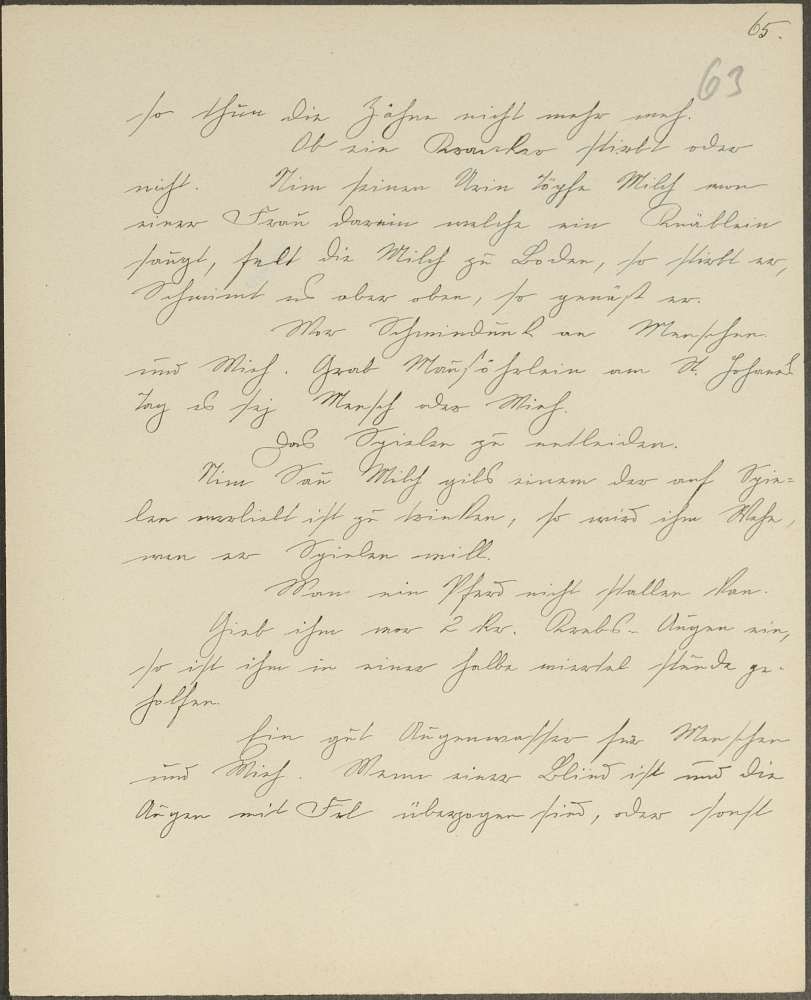 65.
63
so thun die Zähne nicht mehr weh.
Ob ein Kranker stirbt oder
nicht. Nim seinen Urin töpfe Milch von
einer Frau darein welche ein Knäblein
saugt, felt die Milch zu Boden, so stirbt er,
Schwimt es aber oben, so genäst er.
Vor Schwindunk an Menschen
und Vieh. Grab Mausöhrlein am St. Johans
Tag es sej Mensch oder Vieh.
Das Spielen zu entleiden.
Nim Sau Milch gibs einem der auf Spie=
len verliebt ist zu trinken, so wird ihm Wehe,
wen er Spielen will.
Wan ein Pferd nicht stallen kan.
Gieb ihm vor 2 kr. Krebs-Augen ein,
so ist ihm in einer halbe viertel stunde ge-
holfen.
Ein gut Augenwasser für Menschen
und Vieh. Wenn einer Blind ist und die
Augen mit Fel überzogen sind, oder sonst